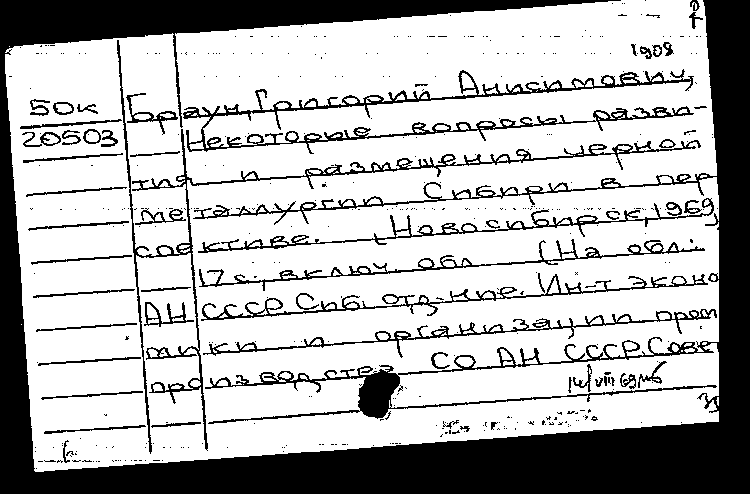 1908
50к Браун, Григорий Анисимович,
20503 Некоторые вопросы разви-
тия и размещения черной
металлургии Сибири в пер
спективе. [Новосибирск, 1969,
17 с., включ. обл. (На обл.:
АН СССР. Сиб. отд-ние. Ин-т эконо
мики и организации пром
производства СО АН СССР. Совет
14/VIII 69